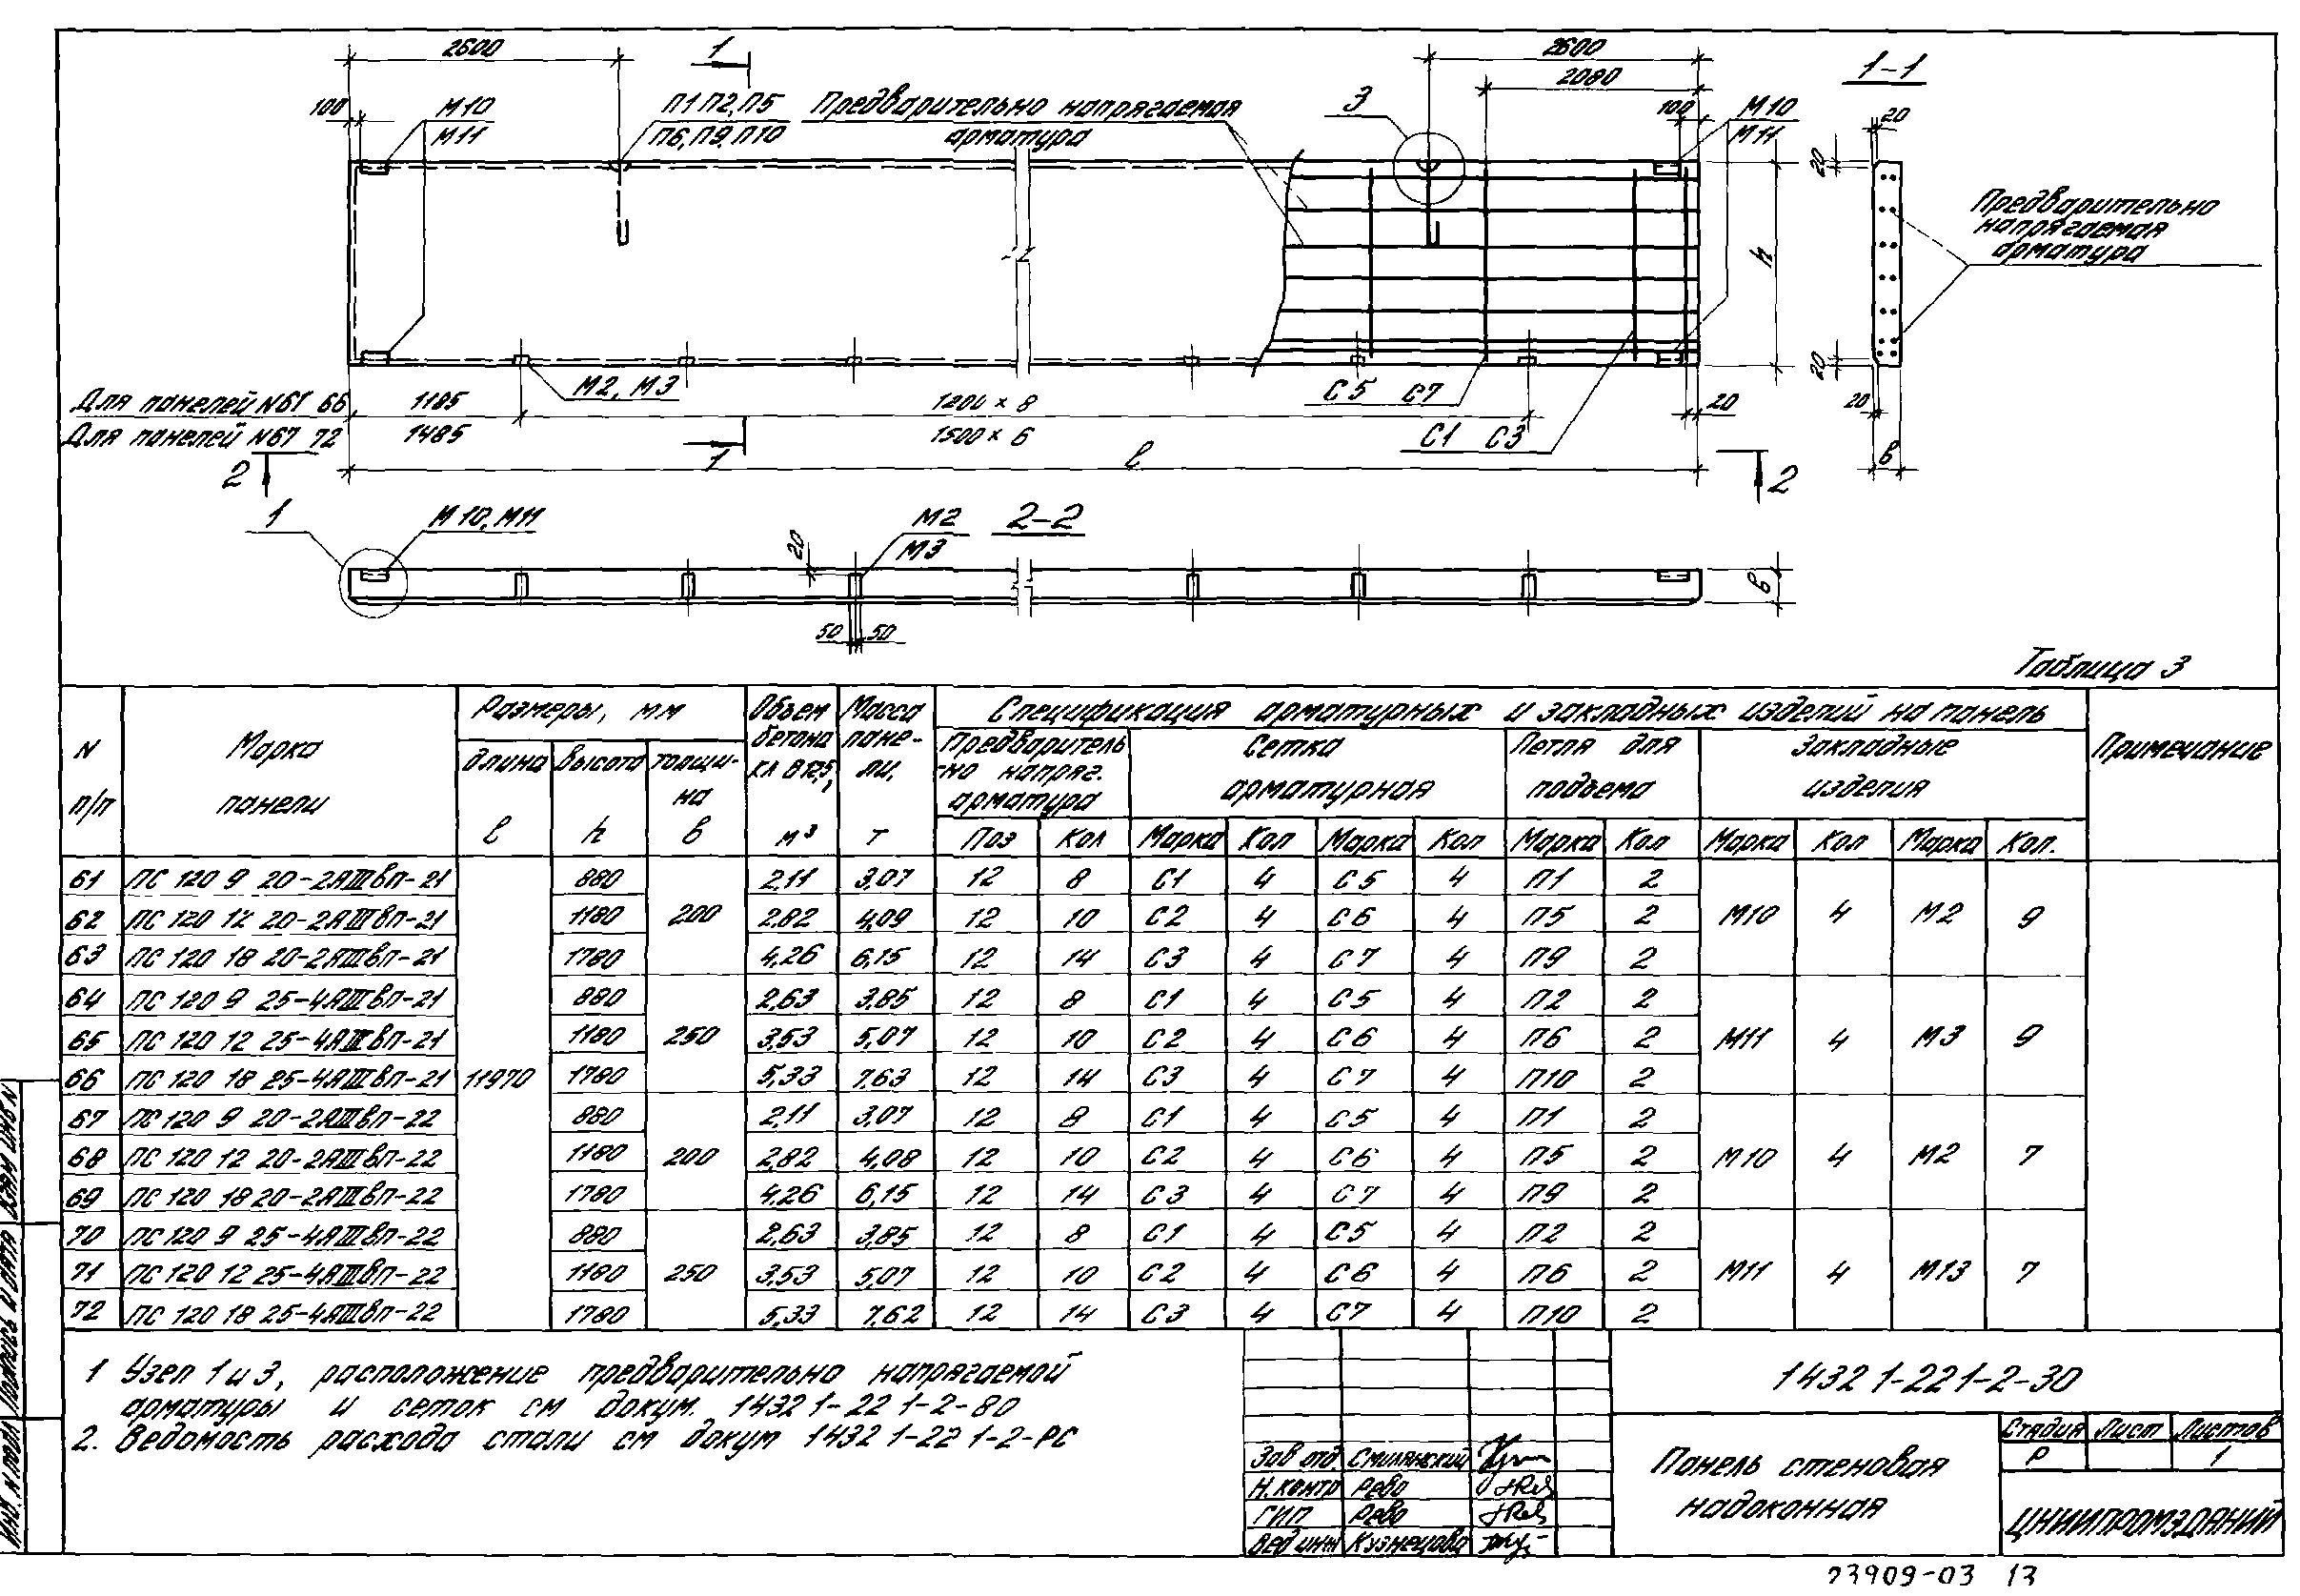 2600
1
2600
2080
1-1
100
М10
М11
П1 П2, П5
П6, П9, П10
Предварительно напрягаемая
арматура
3
100
М10
М11
20
20
h
Предварительно
напрягаемая
арматура
20
20
в
М2, М3
С5 С7
Для панелей N61 66 1185 1200 × 8 20
Для панелей N67 72 1485 1500 × 6
С1 С3
1
ℓ
2
2
1
М10, М11
20
М2
М3
2-2
в
50 50
Таблица 3
N п/п
Марка панели
Размеры, мм
длина ℓ
высота h
толщина в
Объем бетона кл В12,5, м³
Масса панели, т
Спецификация арматурных и закладных изделий на панель
Предварительно напряг. арматура
Сетка арматурная
Петля для подъема
Закладные изделия
Примечание
Поз Кол Марка Кол Марка Кол Марка Кол Марка Кол Марка Кол.
61 ПС 120 9 20-2АIIIвп-21 880 2,11 3,07 12 8 С1 4 С5 4 П1 2
62 ПС 120 12 20-2АIIIвп-21 1180 200 2,82 4,09 12 10 С2 4 С6 4 П5 2 М10 4 М2 9
63 ПС 120 18 20-2АIIIвп-21 1780 4,26 6,15 12 14 С3 4 С7 4 П9 2
64 ПС 120 9 25-4АIIIвп-21 880 2,63 3,85 12 8 С1 4 С5 4 П2 2
65 ПС 120 12 25-4АIIIвп-21 1180 250 3,53 5,07 12 10 С2 4 С6 4 П6 2 М11 4 М3 9
66 ПС 120 18 25-4АIIIвп-21 11970 1780 5,33 7,63 12 14 С3 4 С7 4 П10 2
67 ПС 120 9 20-2АIIIвп-22 880 2,11 3,07 12 8 С1 4 С5 4 П1 2
68 ПС 120 12 20-2АIIIвп-22 1180 200 2,82 4,08 12 10 С2 4 С6 4 П5 2 М10 4 М2 7
69 ПС 120 18 20-2АIIIвп-22 1780 4,26 6,15 12 14 С3 4 С7 4 П9 2
70 ПС 120 9 25-4АIIIвп-22 880 2,63 3,85 12 8 С1 4 С5 4 П2 2
71 ПС 120 12 25-4АIIIвп-22 1180 250 3,53 5,07 12 10 С2 4 С6 4 П6 2 М11 4 М13 7
72 ПС 120 18 25-4АIIIвп-22 1780 5,33 7,62 12 14 С3 4 С7 4 П10 2
1 Узел 1 и 3, расположение предварительно напрягаемой
арматуры и сеток см докум. 1432 1-22 1-2-80
2. Ведомость расхода стали см докум 1432 1-22 1-2-РС
1432 1-22 1-2-30
Зав отд. Смилянский
Н. контр Рево
ГИП Рево
Вед инж Кузнецова
Панель стеновая
надоконная
Стадия Лист Листов
Р 1
ЦНИИПРОМЗДАНИЙ
23909-03 13
Инв. N подл
Подпись и дата
Взам инв N